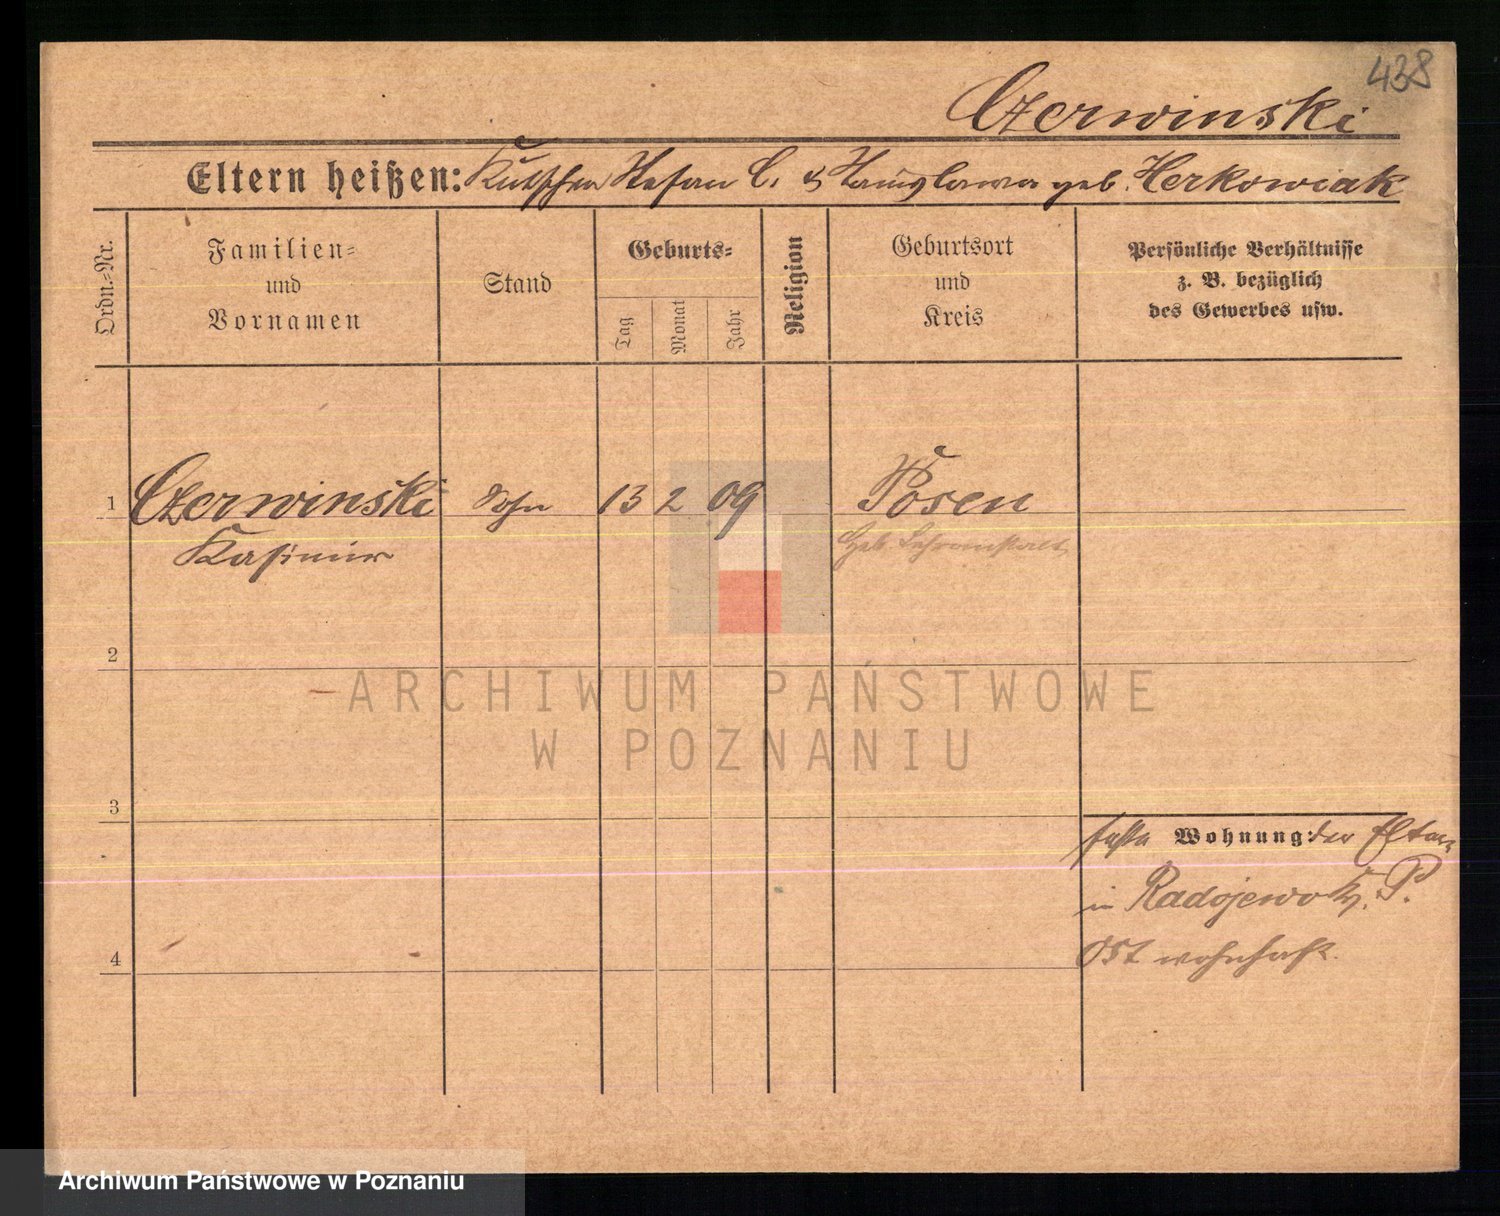 438
Czerwinski
Eltern heißen: Kutscher Stefan C. & Stanislawa geb. Herkowiak
Ordn.-Nr.
Familien-
und
Vornamen
Stand
Geburts-
Tag
Monat
Jahr
Religion
Geburtsort
und
Kreis
Persönliche Verhältnisse
z. B. bezüglich
des Gewerbes usw.
1 Czerwinski Sohn 13 2 09 Posen
Kasimir Heb. Lehranstalt
2
ARCHIWUM PAŃSTWOWE
W POZNANIU
3
Wohnung: der Eltern
in Radojewo Kr. P.
4 Ost wohnhaft.
Archiwum Państwowe w Poznaniu